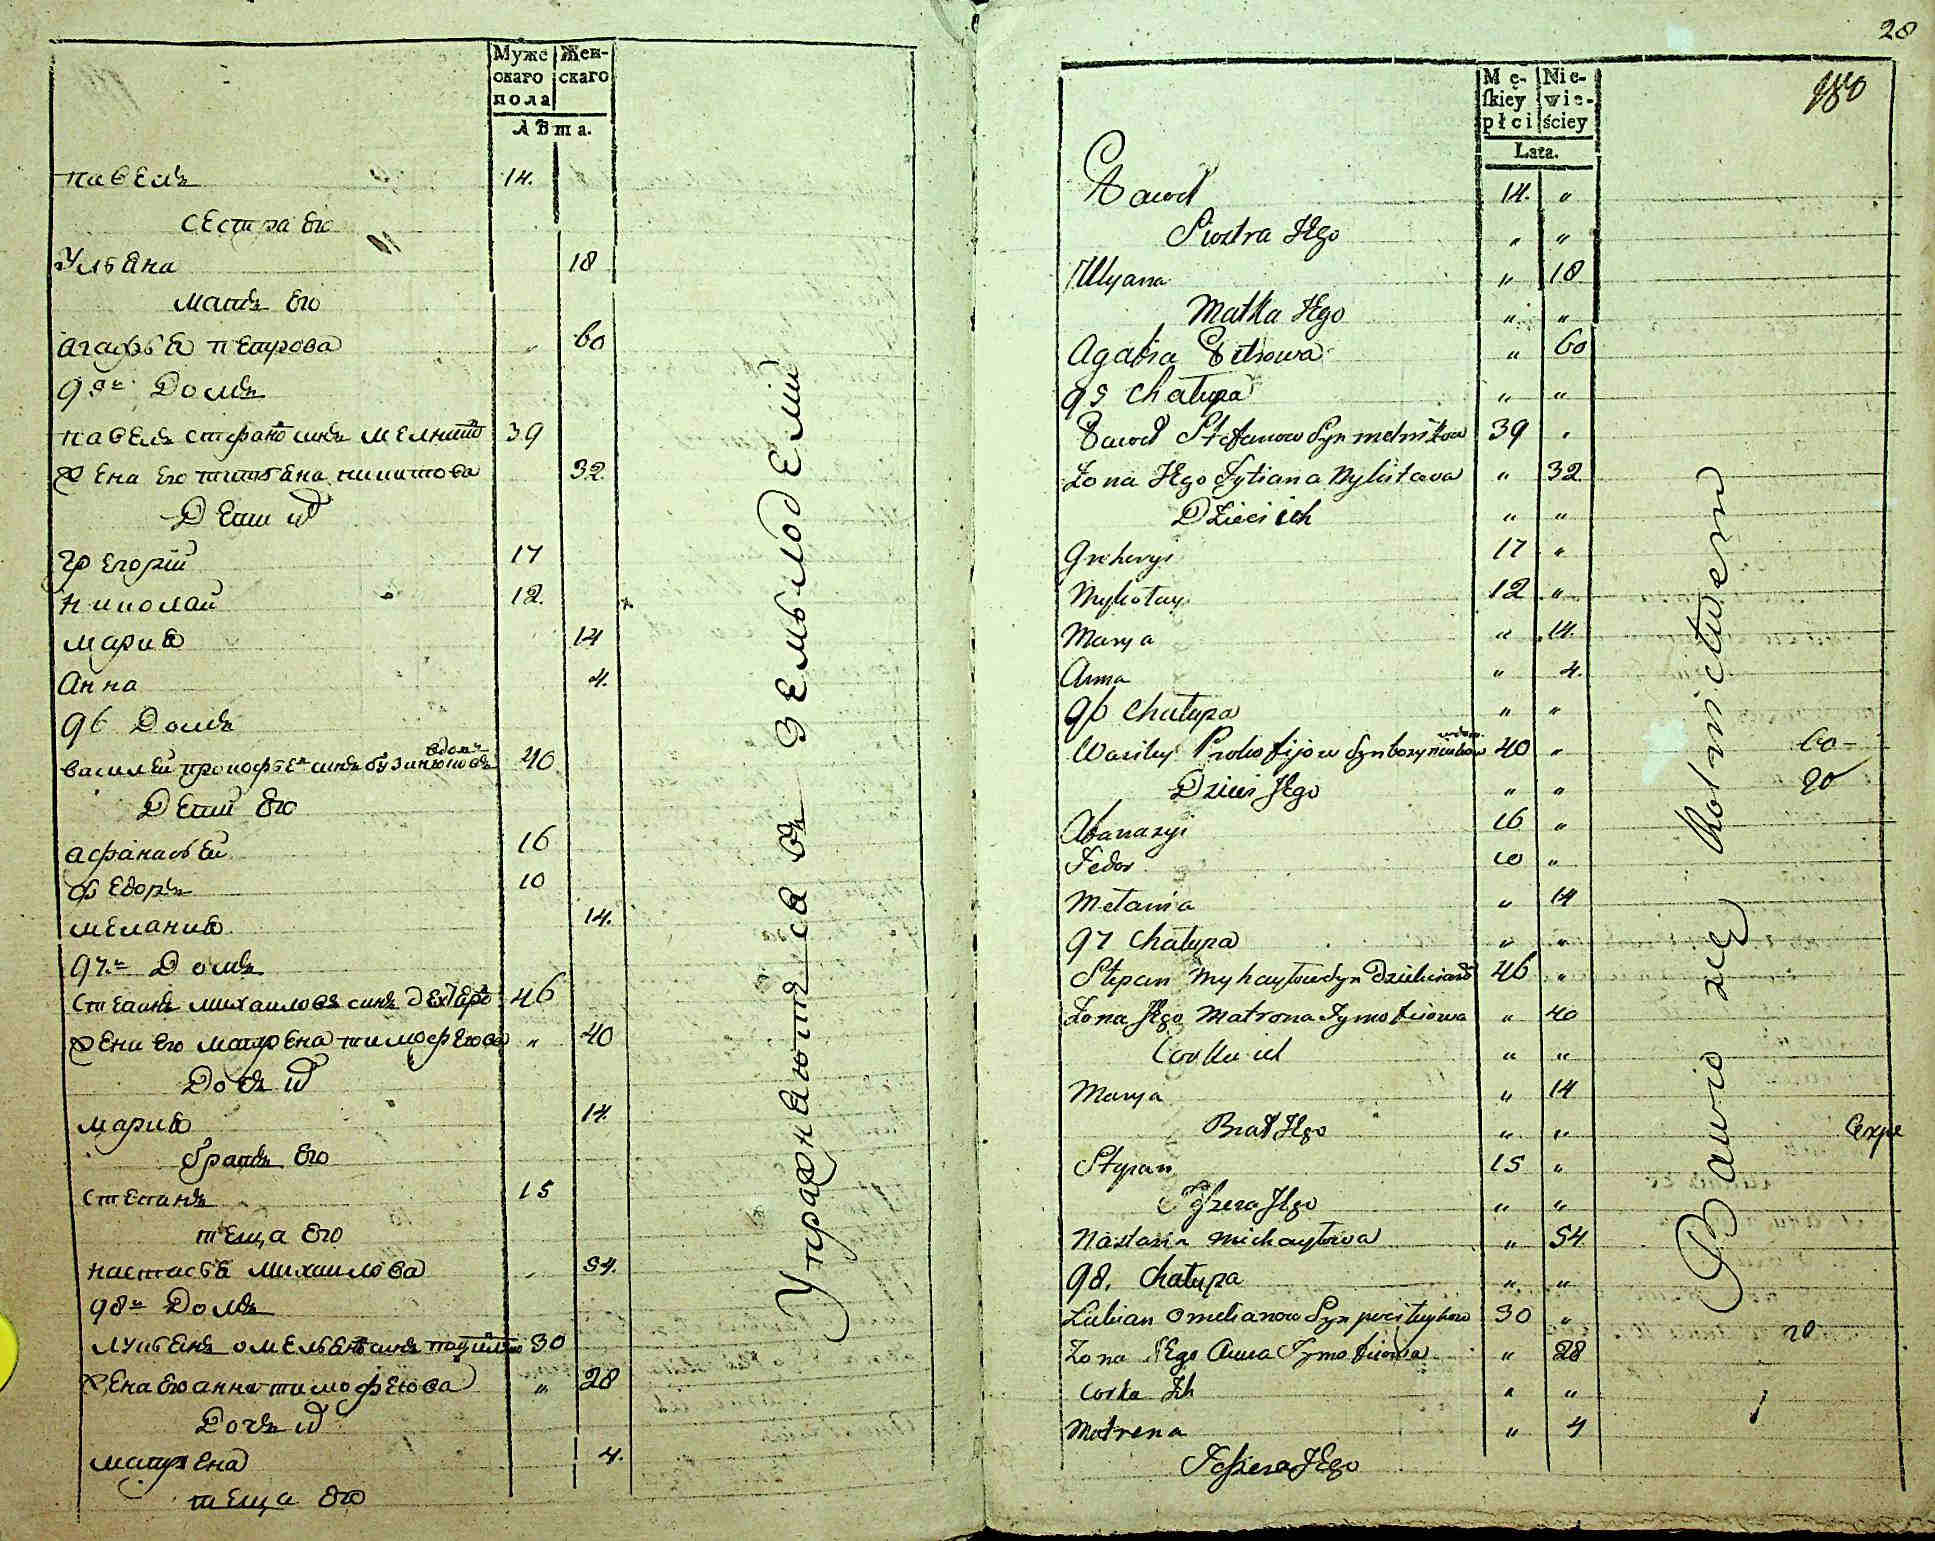 Муже Жен-
скаго скаго
пола
Лѣта.
павелъ 14.
сестра его
Ульяна 18
мать его
агафья петрова 60
95й Домъ
павелъ стефановъ синъ 39
Жена его татьяна 32
Дети их
Григорий 17
николай 12.
мария 14
Анна 4.
96 Домъ
вдовъ
василей прокофьевъ синъ 40
Дети его
афанасьей 16
федоръ 10
мелания 14.
97й Домъ
степанъ михаиловъ синъ 46
Жена его матрена тимофеюва „ 40
Дочь их
мария 14.
братъ его
степанъ 15
теща его
настасья михаилова 54.
98й Домъ
лукьянъ омельяновъ синъ 30
Жена его анна тимофеюва „ 28
Дочь их
матрена 4.
теща его
Упражняются въ земьлоделии
28
180
Mę- Nie-
skiey wie-
płci ściey
Lata.
Paweł 14. „
Siostra Jego „ „
Ulyana „ 18
Matka Jego „ „
Agafia Petrowa „ 60
95 Chałupa „ „
Paweł Stefanow Syn melnikow 39 „
Żona Jego Tytiana „ 32
Dzieci ich „ „
Grehoryi 17 „
Mykołay 12 „
Marya „ 14.
Anna „ 4.
96 Chałupa „ „
Wasiley Prokofijow Syn 40 „ 60
Dzieci Jego „ „ 20
Afanazyi 16 „
Fedor 10 „
Mełania „ 14
97 Chałupa „ „
Stepan Myhayłow Syn 46 „
Żona Jego Matrona Tymofiiowa „ 40
Corka ich „ „
Marya „ 14
Brat Jego „ „
Stypan 15 „
Teszcza Jego „ „
Nastasia Michayłowa „ 54
98. Chałupa „ „
Lukian Omelianow Syn 30 „ 20
Żona Jego Anna Tymofiiowa „ 28
Corka Ich „ „
Motrena „ 4
Teszcza Jego
Bawio się Rolnictwem